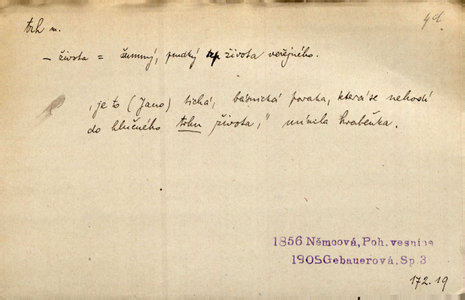 trh m.
4d.
– života = šumný, prudký života veřejného.
„je to (Jana) tichá, básnická povaha, která se nehodí
do hlučného trhu života," mínila hraběnka.
1856 Němcová, Poh. vesnice
1905 Gebauerová, Sp. 3
172.19